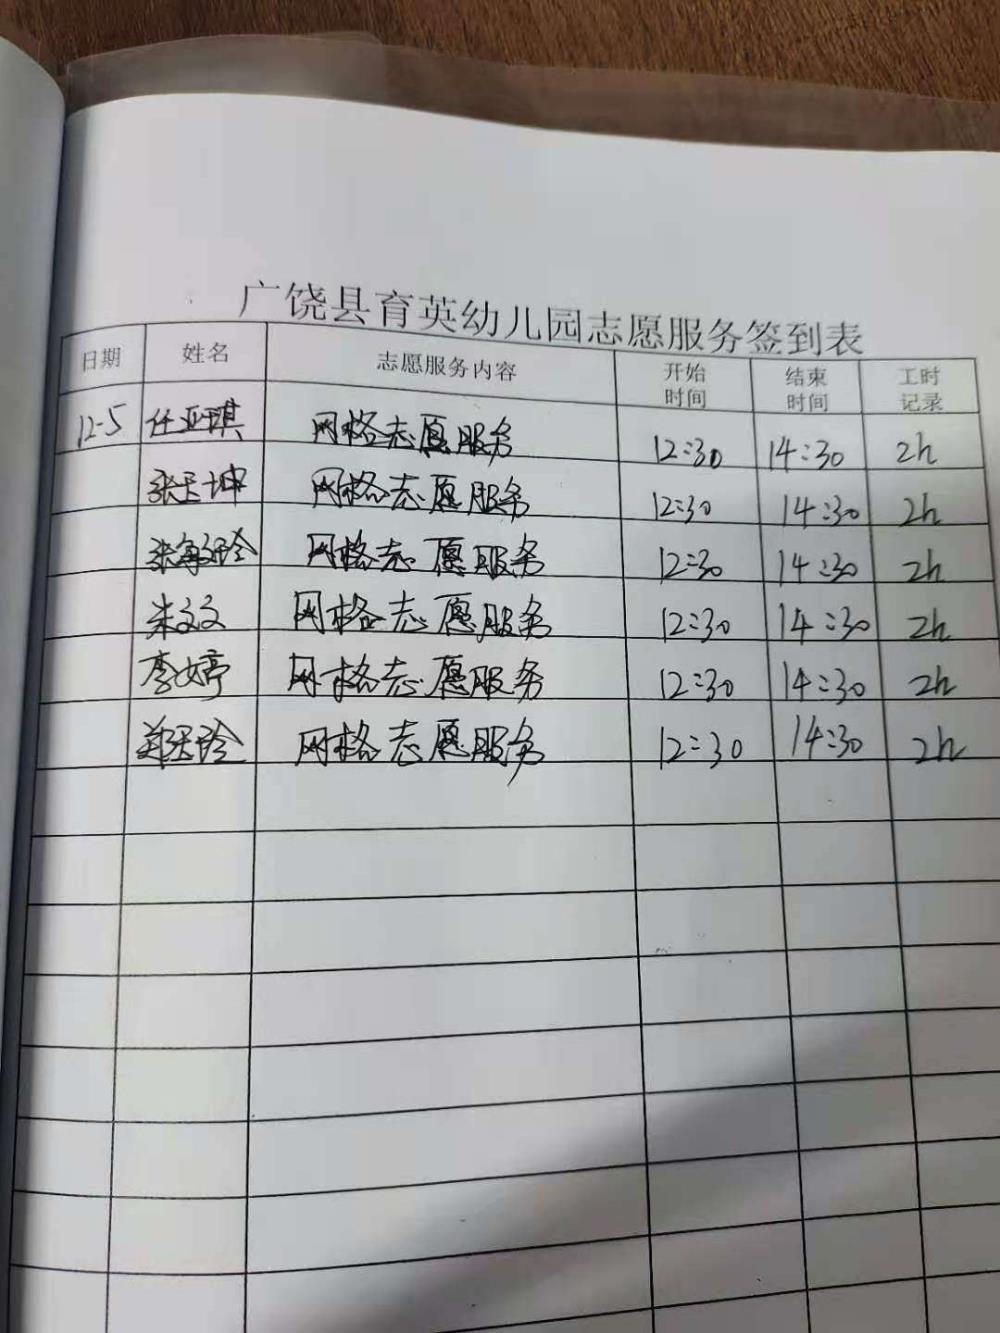 广饶县育英幼儿园志愿服务签到表
日期 姓名 志愿服务内容 开始时间 结束时间 工时记录
12-5 任亚琪 网格志愿服务 12:30 14:30 2h
网格志愿服务 12:30 14:30 2h
张敏玲 网格志愿服务 12:30 14:30 2h
朱文文 网格志愿服务 12:30 14:30 2h
李婷 网格志愿服务 12:30 14:30 2h
网格志愿服务 12:30 14:30 2h